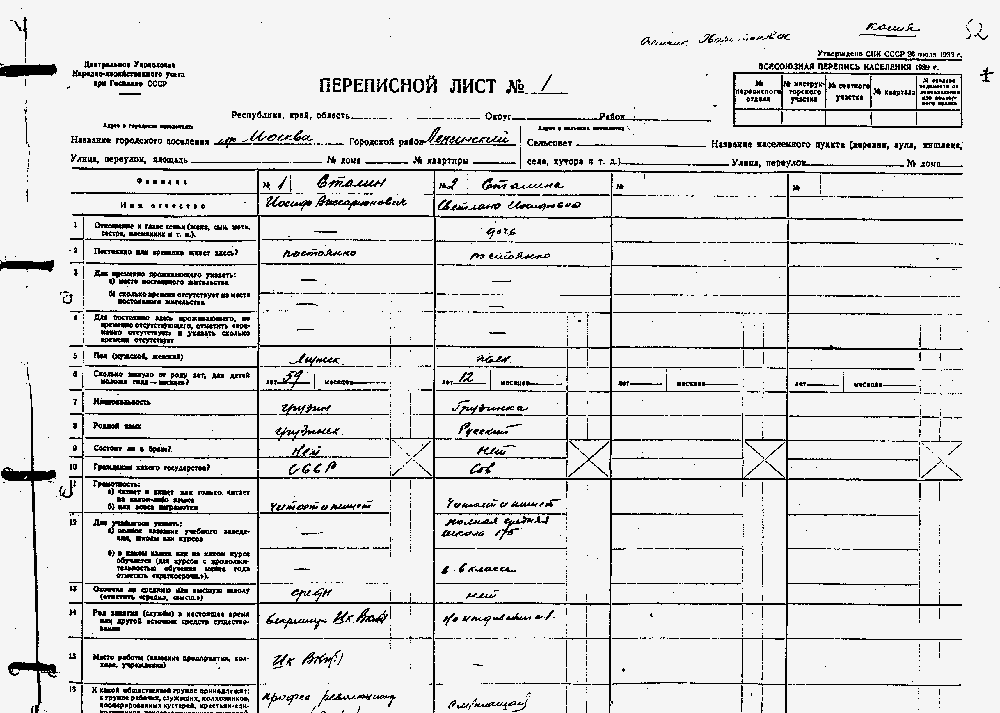 копия
52
Центральное Управление
Народно-хозяйственного учета
при Госплане СССР
Утверждено СНК СССР 26 июля 1938 г.
ВСЕСОЮЗНАЯ ПЕРЕПИСЬ НАСЕЛЕНИЯ 1939 г.
ПЕРЕПИСНОЙ ЛИСТ № 1
№ переписного отдела
№ инструкторского участка
№ счетного участка
№ квартала
Республика, край, область Округ Район
Адрес в городских поселениях
Название городского поселения гор. Москва Городской район Ленинский
Сельсовет Название населенного пункта (деревни, аула, кишлака,
Улица, переулок, площадь № дома № квартиры села, хутора и т. д.) Улица, переулок № дома
Фамилия № 1 Сталин № 2 Сталина № №
Имя отчество Иосиф Виссарионович Светлана Иосифовна
1 Отношение к главе семьи (жена, сын, мать, сестра, племянник и т. п.). — дочь
2 Постоянно или временно живет здесь? постоянно постоянно
3 Для временно проживающего указать:
а) место постоянного жительства — —
б) сколько времени отсутствует из места постоянного жительства — —
4 Для постоянно здесь проживающего, но временно отсутствующего, отметить «временно отсутствует» и указать сколько времени отсутствует — —
5 Пол (мужской, женский) мужск женск.
6 Сколько минуло от роду лет, для детей моложе года — месяцев? лет 59 месяцев лет 12 месяцев лет месяцев лет месяцев
7 Национальность грузин Грузинка
8 Родной язык грузинск. Русский
9 Состоит ли в браке? нет нет
10 Гражданин какого государства? СССР Сов
11 Грамотность:
а) читает и пишет или только читает на каком-либо языке
б) или вовсе неграмотен читает и пишет Читает и пишет
12 Для учащегося указать:
а) полное название учебного заведения, школы или курсов — полная средняя школа
б) в каком классе или на каком курсе обучается (для курсов с продолжительностью обучения менее года отметить «краткосрочн.»). — в 6 классе
13 Окончил ли среднюю или высшую школу (отметить «средн», «высш.») средн нет
14 Род занятия (службы) в настоящее время или другой источник средств существования Секретарь ЦК ВКП(б) на иждивении
15 Место работы (название предприятия, колхоза, учреждения) ЦК ВКП(б) —
16 К какой общественной группе принадлежит: к группе рабочих, служащих, колхозников, кооперированных кустарей, крестьян-еди- профес. революционер служащей